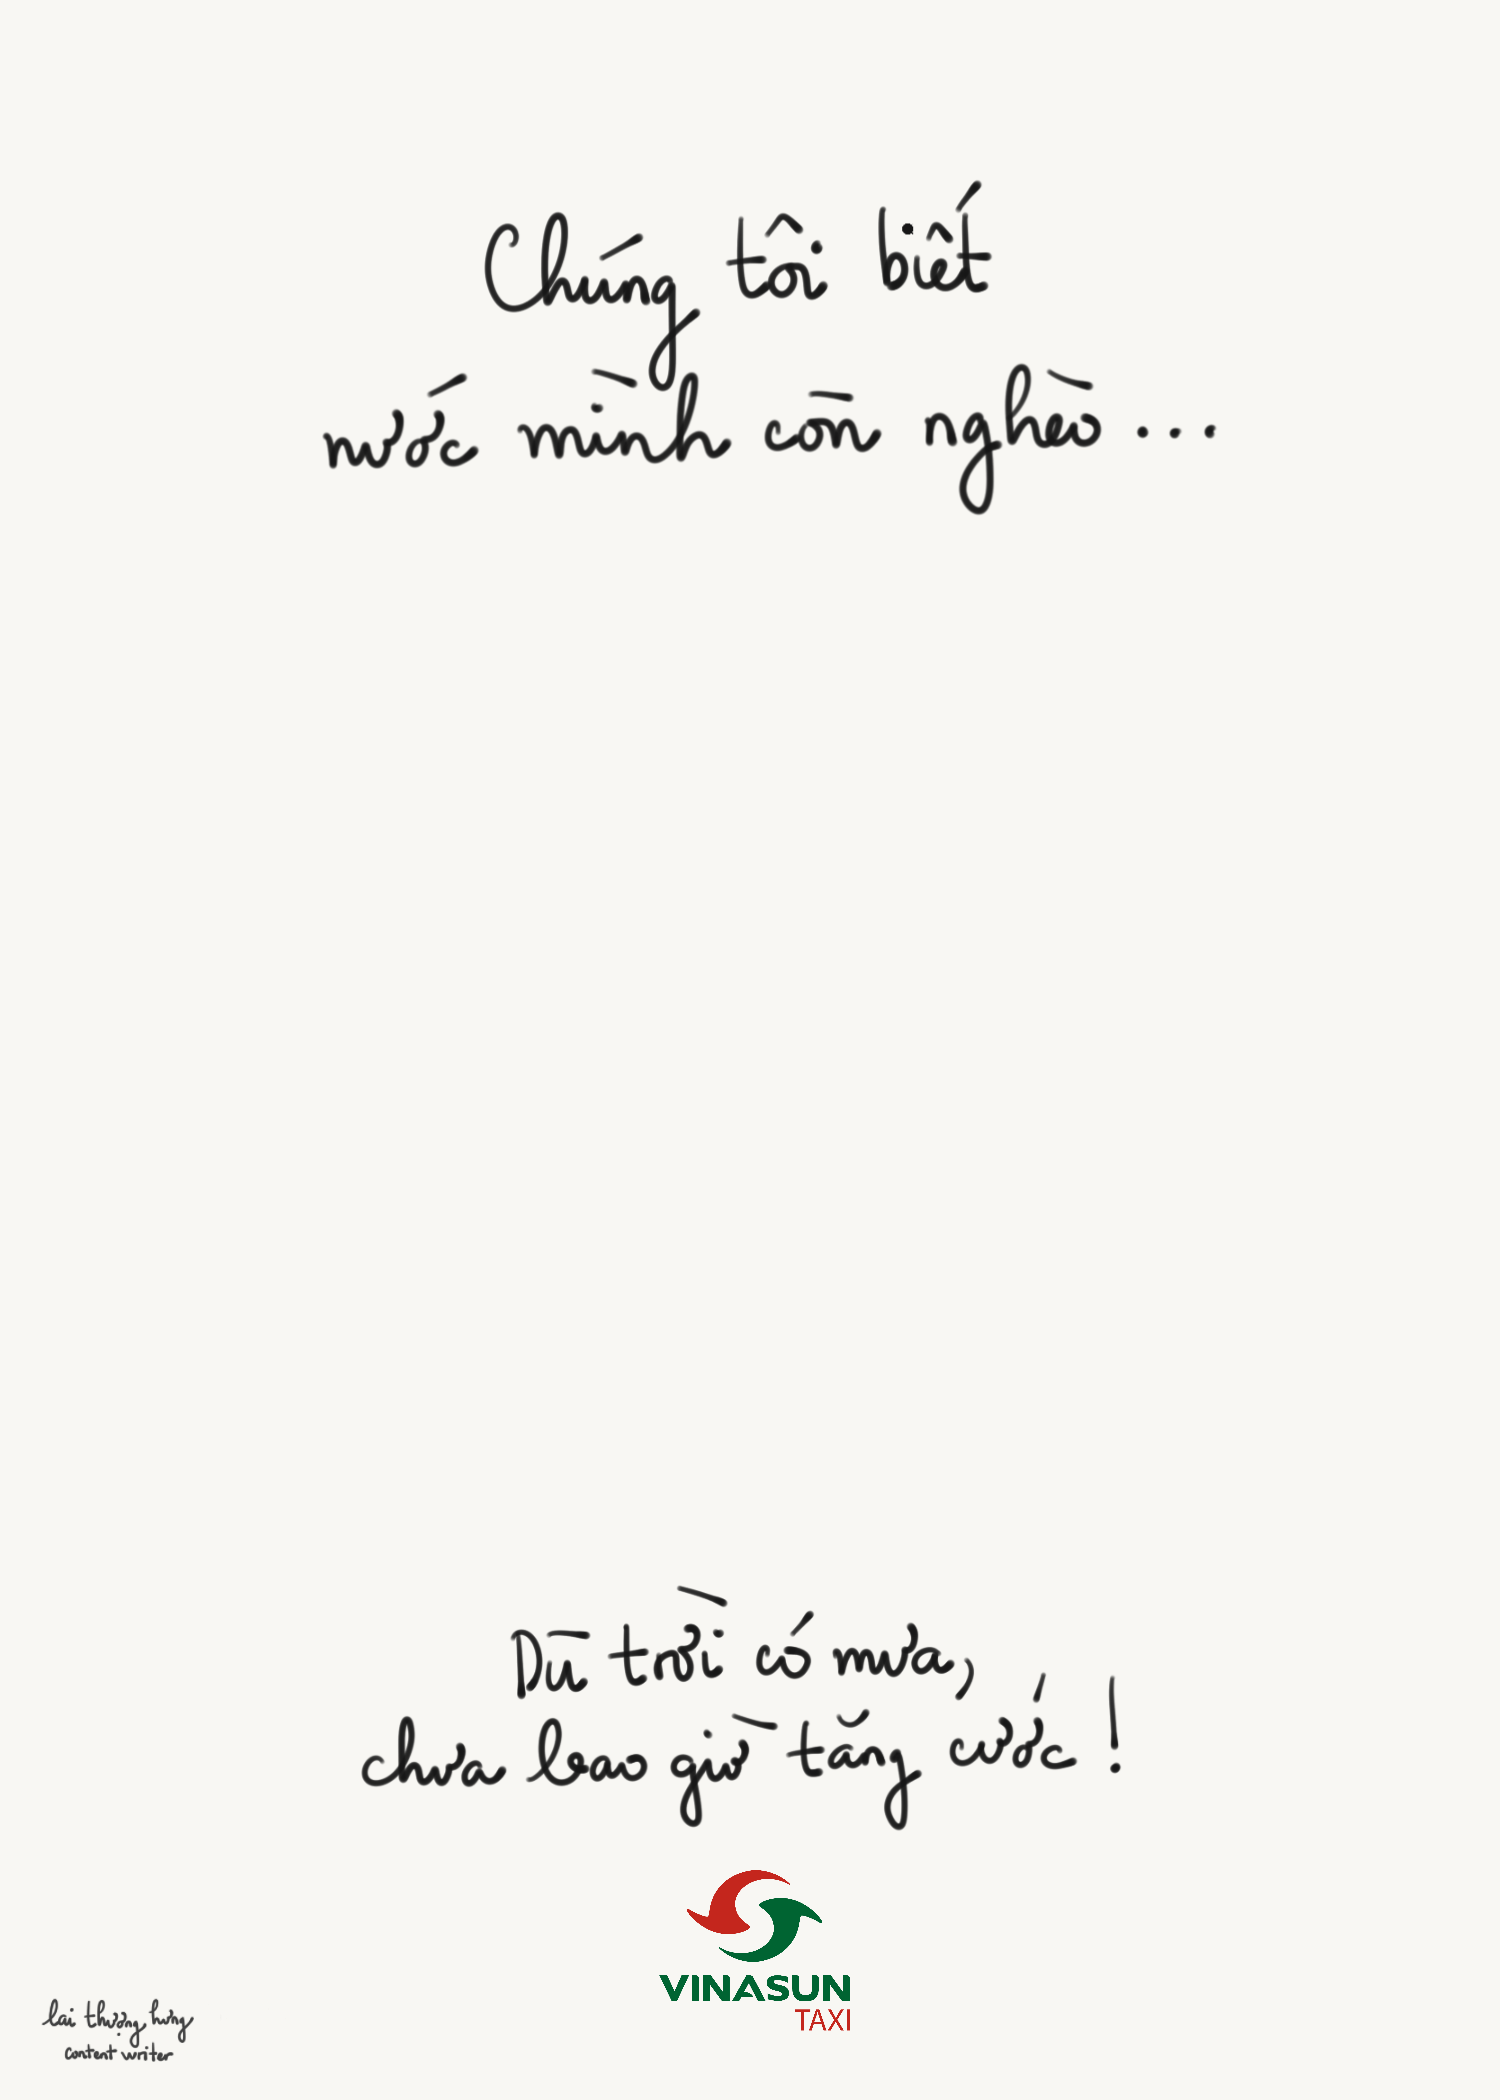 Chúng tôi biết
nước mình còn nghèo...
Dù trời có mưa,
chưa bao giờ tăng cước!
VINASUN
TAXI
lai thượng hưng
content writer